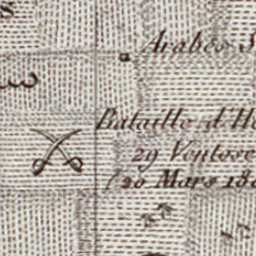 Arabes
Bataille d'H
29 Ventose
(20 Mars 18